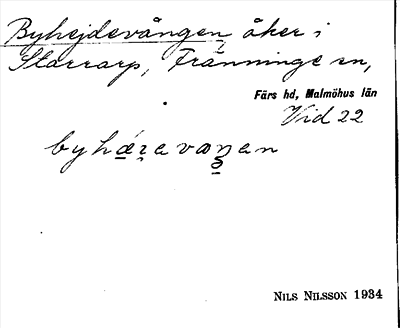 Byhejdevången åker i
Starrarp, Tranninge sn,
Färs hd, Malmöhus län
Vid 22
NILS NILSSON 1934